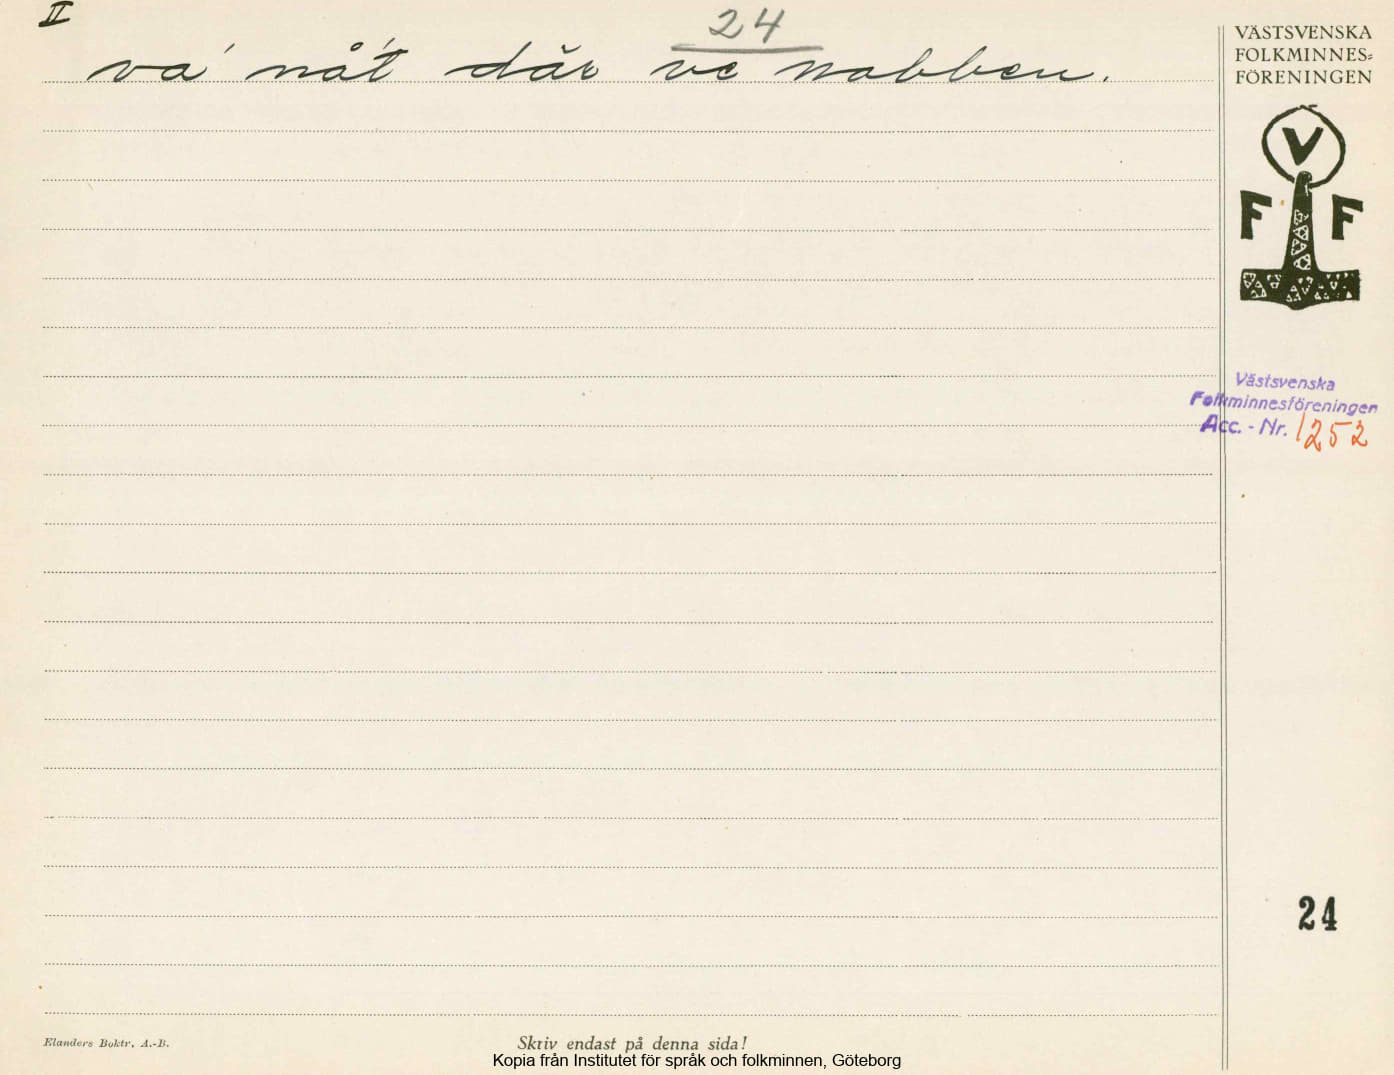 II
24
vá nåt där ve nabben.
VÄSTSVENSKA
FOLKMINNES=
FÖRENINGEN
V
F F
Västsvenska
Folkminnesföreningen
Acc. - Nr. 1252
24
Elanders Boktr. A.-B.
Skriv endast på denna sida!
Kopia från Institutet för språk och folkminnen, Göteborg